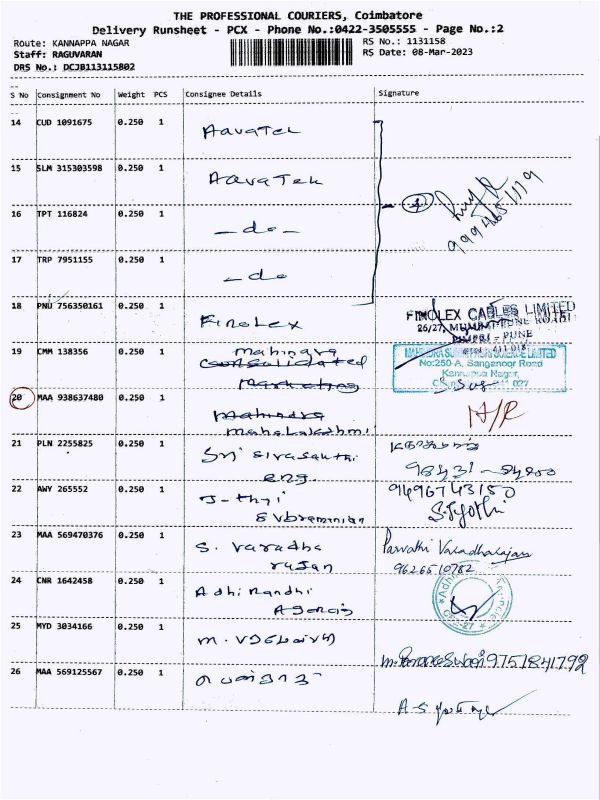 THE PROFESSIONAL COURIERS, Coimbatore
Delivery Runsheet - PCX - Phone No.:0422-3505555 - Page No.:2
Route: KANNAPPA NAGAR
RS No.: 1131158
Staff: RAGUVARAN
RS Date: 08-Mar-2023
DRS No.: DCJB113115802
S No Consignment No Weight PCS Consignee Details Signature
14 CUD 1091675 0.250 1 AavaTek
15 SLM 315303598 0.250 1 AavaTek
16 TPT 116824 0.250 1 -do-
17 TRP 7951155 0.250 1 -do
18 PNU 756350161 0.250 1 Finolex
FINOLEX CABLES LIMITED
26/27, MUMBAI PUNE ROAD
PIMPRI - PUNE
19 CMM 138356 0.250 1 mahindra
consolidated
Marketing
LIMITED
No:250-A, Sanganoor Road
Kannappa Nagar,
027
20 MAA 938637480 0.250 1 Mahindra
mahalakshmi
N/R
21 PLN 2255825 0.250 1 Sri sivasakthi
eng.
22 AWY 265552 0.250 1 J-thyi
Subramanian
9496743150
S.Jyothi
23 MAA 569470376 0.250 1 S. varadha
rajan
Parvathi Varadharajan
9626510782
24 CNR 1642458 0.250 1 Adhi Nandhi
Agencis
25 MYD 3034166 0.250 1
9751841792
26 MAA 569125567 0.250 1